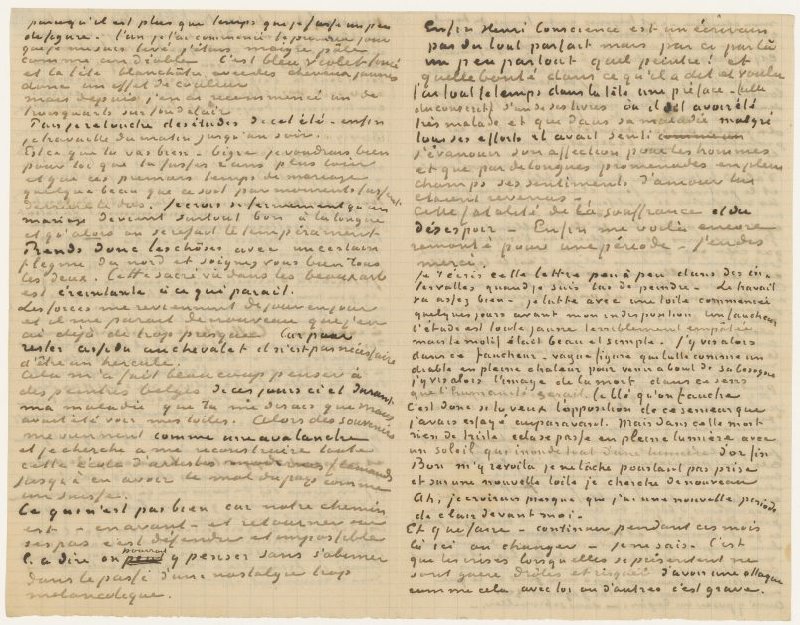 parcequ'il est plus que temps que je fasse un peu
de figure. L'un je l'ai commencé le premier jour
que je me suis levé j'étais maigre, pâle
comme un diable. C'est bleu violet foncé
et la tête blanchâtre avec des cheveux jaunes
donc un effet de couleur
mais depuis j'en ai recommencé un de
trois quarts sur fond clair.
Puis je retouche des études de cet été – enfin
je travaille du matin jusqu'au soir.
Est ce que tu vas bien – bigre je voudrais bien
pour toi que tu fusses 2 ans plus loin
et que ces premiers temps de mariage
quelque beau que ce soit par moments fussent
derrière le dos. Je crois si fermement qu'un
mariage devient surtout bon à la longue
et qu'alors on se refait le tempérament
Prends donc les choses avec un certain
flegme du nord et soignez vous bien tous
les deux. Cette sacrée vie dans les beaux arts
est éreintante à ce qui parait.
Les forces me reviennent de jour en jour
et il me parait de nouveau que j'en
ai déjà de trop presque. Car pour
rester assidu au chevalet il n'est pas nécessaire
d'être un hercule.
Cela m'a fait beaucoup penser à
des peintres belges de ces jours ci et durant
ma maladie que tu me disais que Maus
avait été voir mes toiles. Alors des souvenirs
me viennent comme une avalanche
et je cherche à me reconstruire toute
cette école d'artistes modernes flamands
jusqu'à en avoir le mal du pays comme
un suisse.
Ce qui n'est pas bien car notre chemin
est – en avant – et retourner sur
ses pas c'est défendu et impossible
c. à dire on pourrait y penser sans s'abimer
dans le passé d'une nostalgie trop
mélancolique.
Enfin Henri Conscience est un écrivain
pas du tout parfait mais par ci par là
un peu partout quel peintre! et
quelle bonté dans ce qu'il a dit et voulu
J'ai tout le temps dans la tête une préface – celle
du conscrit d'un de ses livres où il dit avoir été
très malade et que dans sa maladie malgré
tous ses efforts il avait senti
s'évanouir son affection pour les hommes
et que par de longues promenades en plein
champs ses sentiments d'amour lui
étaient revenus –
Cette fatalité de la souffrance et du
désespoir – Enfin me voilà encore
remonté pour une période – j'en dis
merci.
Je t'écris cette lettre peu à peu dans des in-
tervalles quand je suis las de peindre. Le travail
va assez bien – je lutte avec une toile commencée
quelques jours avant mon indisposition. Un faucheur
l'étude est toute jaune terriblement empâtée
mais le motif était beau et simple. J'y vis alors
dans ce faucheur – vague figure qui lutte comme un
diable en pleine chaleur pour venir à bout de sa besogne
j'y vis alors l'image de la mort dans ce sens
que l'humanité serait le blé qu'on fauche
C'est donc si tu veux l'opposition de ce semeur que
j'avais essayé auparavant. Mais dans cette mort
rien de triste cela se passe en pleine lumière avec
un soleil qui inonde tout d'une lumière d'or fin
Bon m'y revoila je ne lâche pourtant pas prise
et sur une nouvelle toile je cherche de nouveau
Ah, je croirais presque que j'ai une nouvelle période
de clair devant moi.
Et que faire – continuer pendant ces mois
là ici ou changer – je ne sais. C'est
que les crises lorsqu'elles se présentent ne
sont guère drôles et risquer d'avoir une attaque
comme cela avec toi ou d'autres c'est grave.